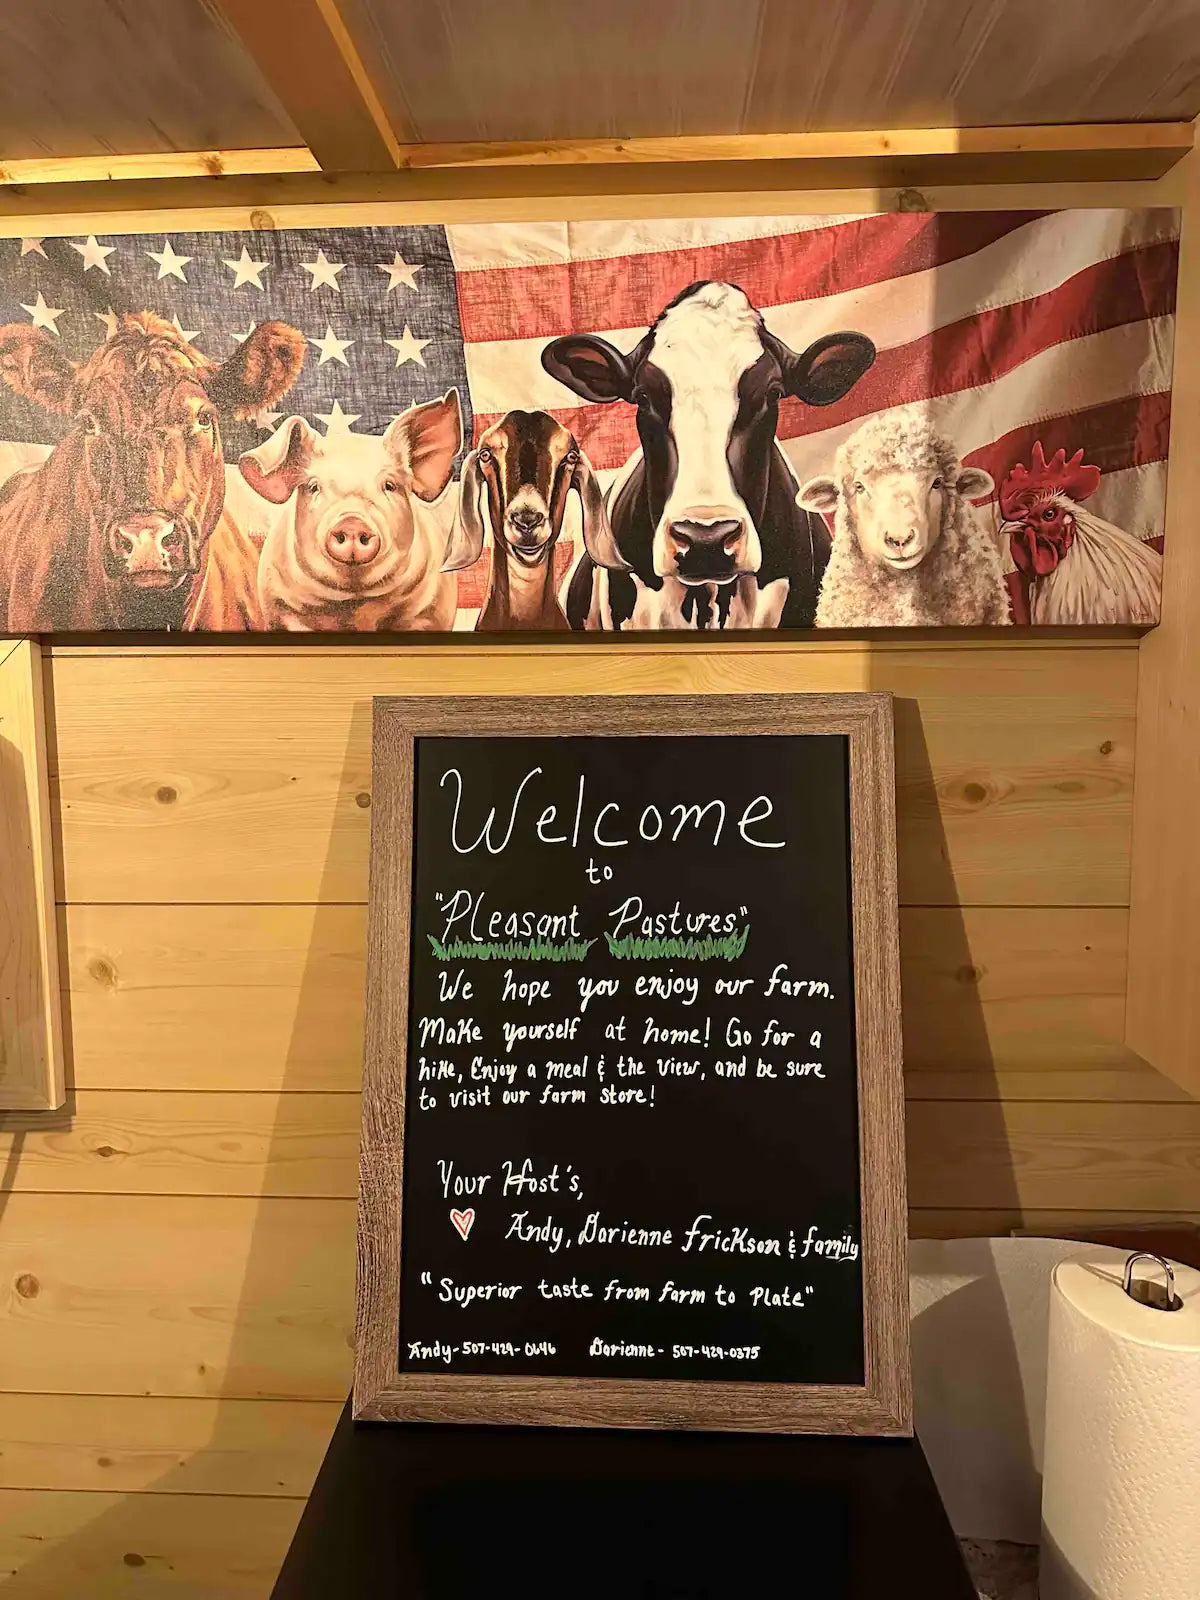 Welcome
to
"Pleasant Pastures"
We hope you enjoy our farm.
Make yourself at home! Go for a
hike, Enjoy a meal & the view, and be sure
to visit our farm store!
Your Host's,
Andy, Darienne Frickson & family
"Superior taste from farm to Plate"
Andy-507-429-0646 Darienne- 507-429-0375